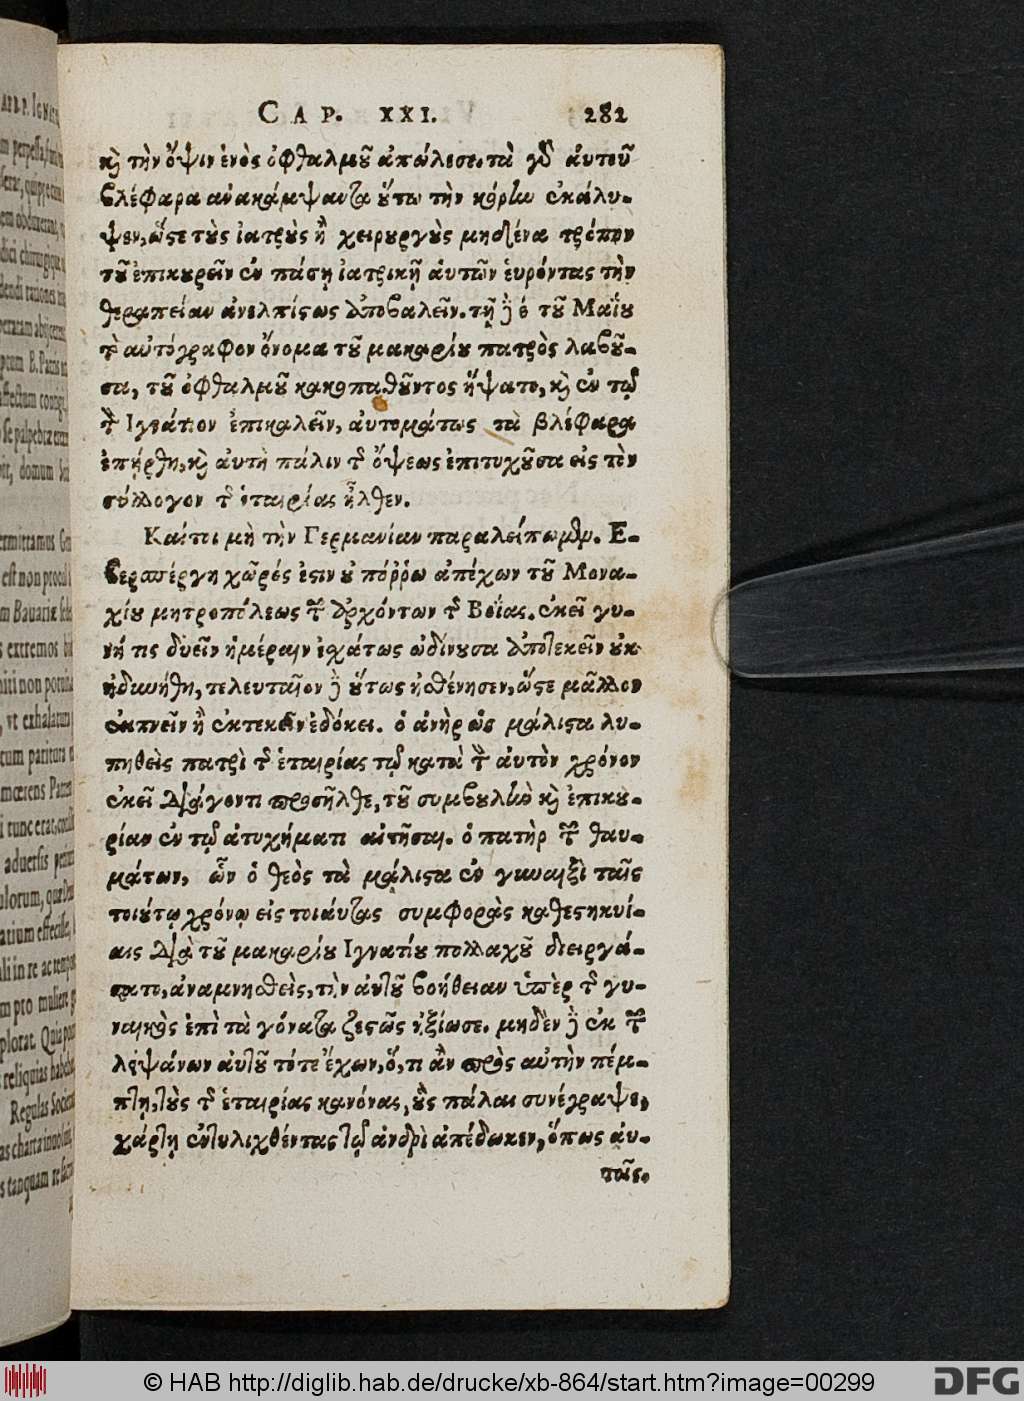 CAP. XXI. 282
καὶ τὴν ὄψιν ἑνὸς ὀφθαλμοῦ ἀπώλεσε. τὰ γὰρ αὐτοῦ
βλέφαρα ἀνακάμψαντα οὕτω τὴν κόρην ἐκάλυ-
ψεν, ὥστε τοὺς ἰατροὺς ἢ χειρουργοὺς μηδένα τρόπον
τοῦ ἐπικουρεῖν ἐν πάσῃ ἰατρικῇ αὐτῶν εὑρόντας τὴν
θεραπείαν ἀνελπίστως ἀποβαλεῖν. τῇ δὲ ἑ τοῦ Μαΐου
τὸ αὐτόγραφον ὄνομα τοῦ μακαρίου πατρὸς λαβοῦ-
σα, τοῦ ὀφθαλμοῦ κακοπαθοῦντος ἥψατο, καὶ ἐν τῷ
τὸν Ιγνάτιον ἐπικαλεῖν, αὐτομάτως τὰ βλέφαρα
ἐπήρθη, καὶ αὐτὴ πάλιν τῆς ὄψεως ἐπιτυχοῦσα εἰς τὸν
σύλλογον τῆς ἑταιρίας ἦλθεν.
Καίτοι μὴ τὴν Γερμανίαν παραλείπωμεν. Ε-
βερσπέργη χῶρός ἐστιν οὐ πόῤῥω ἀπέχων τοῦ Μονα-
χίου μητροπόλεως τῶν ἀρχόντων τῆς Βοΐας. ἐκεῖ γυ-
νή τις δυεῖν ἡμέραιν ἐσχάτως ὠδίνουσα ἀποτεκεῖν οὐκ
ἠδυνήθη, τελευταῖον δὲ οὕτως ἠσθένησεν, ὥστε μᾶλλον
ἐκπνεῖν ἢ ἐκτεκεῖν ἐδόκει. ὁ ἀνὴρ ὡς μάλιστα λυ-
πηθεὶς πατρὶ τῆς ἑταιρίας τῷ κατὰ τὸν αὐτὸν χρόνον
ἐκεῖ διάγοντι προσῆλθε, τοῦ συμβουλὴν καὶ ἐπικου-
ρίαν ἐν τῷ ἀτυχήματι αἰτῆσαι. ὁ πατὴρ τῶν θαυ-
μάτων, ὧν ὁ θεὸς τὰ μάλιστα ἐν γυναιξὶ ταῖς
τοιούτῳ χρόνῳ εἰς τοιαύτας συμφορὰς καθεστηκυί-
αις διὰ τοῦ μακαρίου Ιγνατίου πολλαχοῦ διειργά-
σατο, ἀναμνησθεὶς, τὴν αὐτοῦ βοήθειαν ὑπὲρ τῆς γυ-
ναικὸς ἐπὶ τὰ γόνατα ζεστῶς ἠξίωσε. μηδὲν δὲ ἐκ τῶν
λειψάνων αὐτοῦ τότε ἔχων, ὅ, τι ἂν πρὸς αὐτὴν πέμ-
πτῃ, τοὺς τῆς ἑταιρίας κανόνας, οὓς πάλαι συνέγραψε,
χάρτῃ ἐντυλιχθέντας τῷ ἀνδρὶ ἀπέδωκεν, ὅπως αὐ-
τοῖς.
© HAB http://diglib.hab.de/drucke/xb-864/start.htm?image=00299
DFG